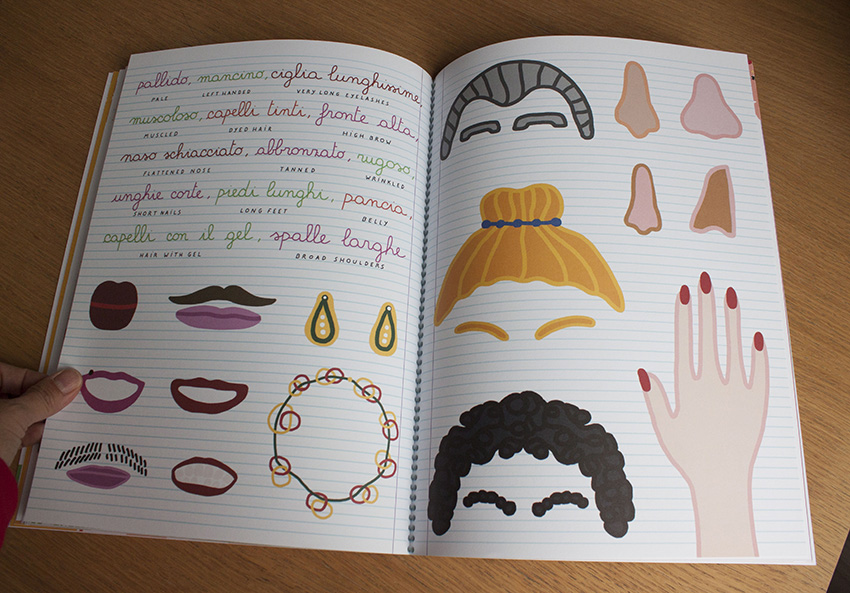 pallido, mancino, ciglia lunghissime,
PALE LEFT HANDED VERY LONG EYELASHES
muscoloso, capelli tinti, fronte alta,
MUSCLED DYED HAIR HIGH BROW
naso schiacciato, abbronzato, rugoso,
FLATTENED NOSE TANNED WRINKLED
unghie corte, piedi lunghi, pancia,
SHORT NAILS LONG FEET BELLY
capelli con il gel, spalle larghe
HAIR WITH GEL BROAD SHOULDERS